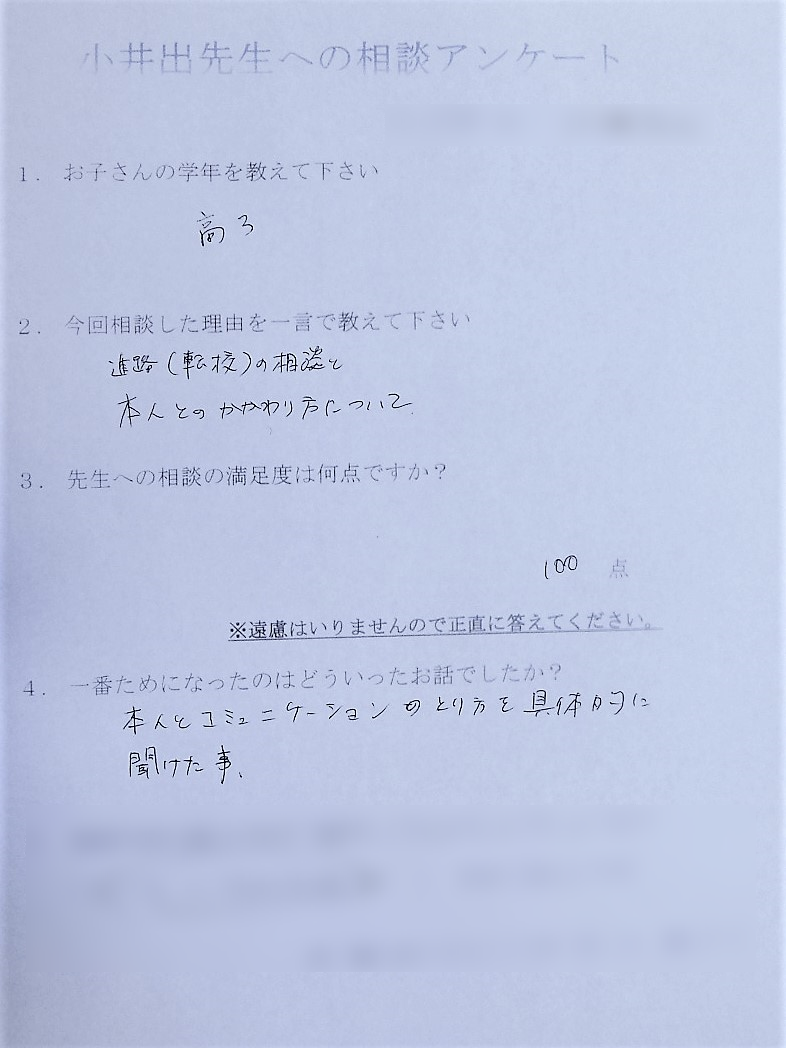 小井出先生への相談アンケート
1. お子さんの学年を教えて下さい
高3
2. 今回相談した理由を一言で教えて下さい
進路(転校)の相談と
本人とのかかわり方について
3. 先生への相談の満足度は何点ですか?
100 点
※遠慮はいりませんので正直に答えてください。
4. 一番ためになったのはどういったお話でしたか?
本人とコミュニケーションのとり方を具体的に
聞けた事、